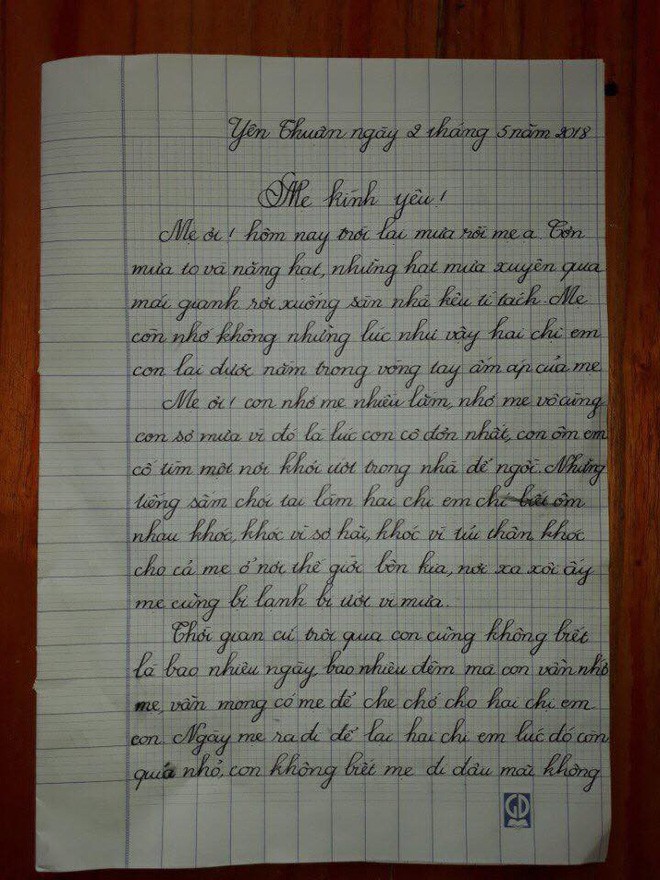 Yên Thuận ngày 2 tháng 5 năm 2018
Mẹ kính yêu!
Mẹ ơi! hôm nay trời lại mưa rồi mẹ ạ. Cơn
mưa to và nặng hạt, những hạt mưa xuyên qua
mái gianh rơi xuống sàn nhà kêu tí tách. Mẹ
còn nhớ không những lúc như vậy hai chị em
con lại được nằm trong vòng tay ấm áp của mẹ
Mẹ ơi! con nhớ mẹ nhiều lắm, nhớ mẹ vô cùng
con sợ mưa vì đó là lúc con cô đơn nhất, con ôm em
cố tìm một nơi khỏi ướt trong nhà để ngồi. Những
tiếng sấm chói tai làm hai chị em chỉ biết ôm
nhau khóc, khóc vì sợ hãi, khóc vì tủi thân, khóc
cho cả mẹ ở nơi thế giới bên kia, nơi xa xôi ấy
mẹ cũng bị lạnh bị ướt vì mưa..
Thời gian cứ trôi qua con cũng không biết
là bao nhiêu ngày, bao nhiêu đêm mà con vẫn nhớ
mẹ, vẫn mong có mẹ để che chở cho hai chị em
con. Ngày mẹ ra đi để lại hai chị em lúc đó còn
quá nhỏ, con không biết mẹ đi đâu mà không
GD